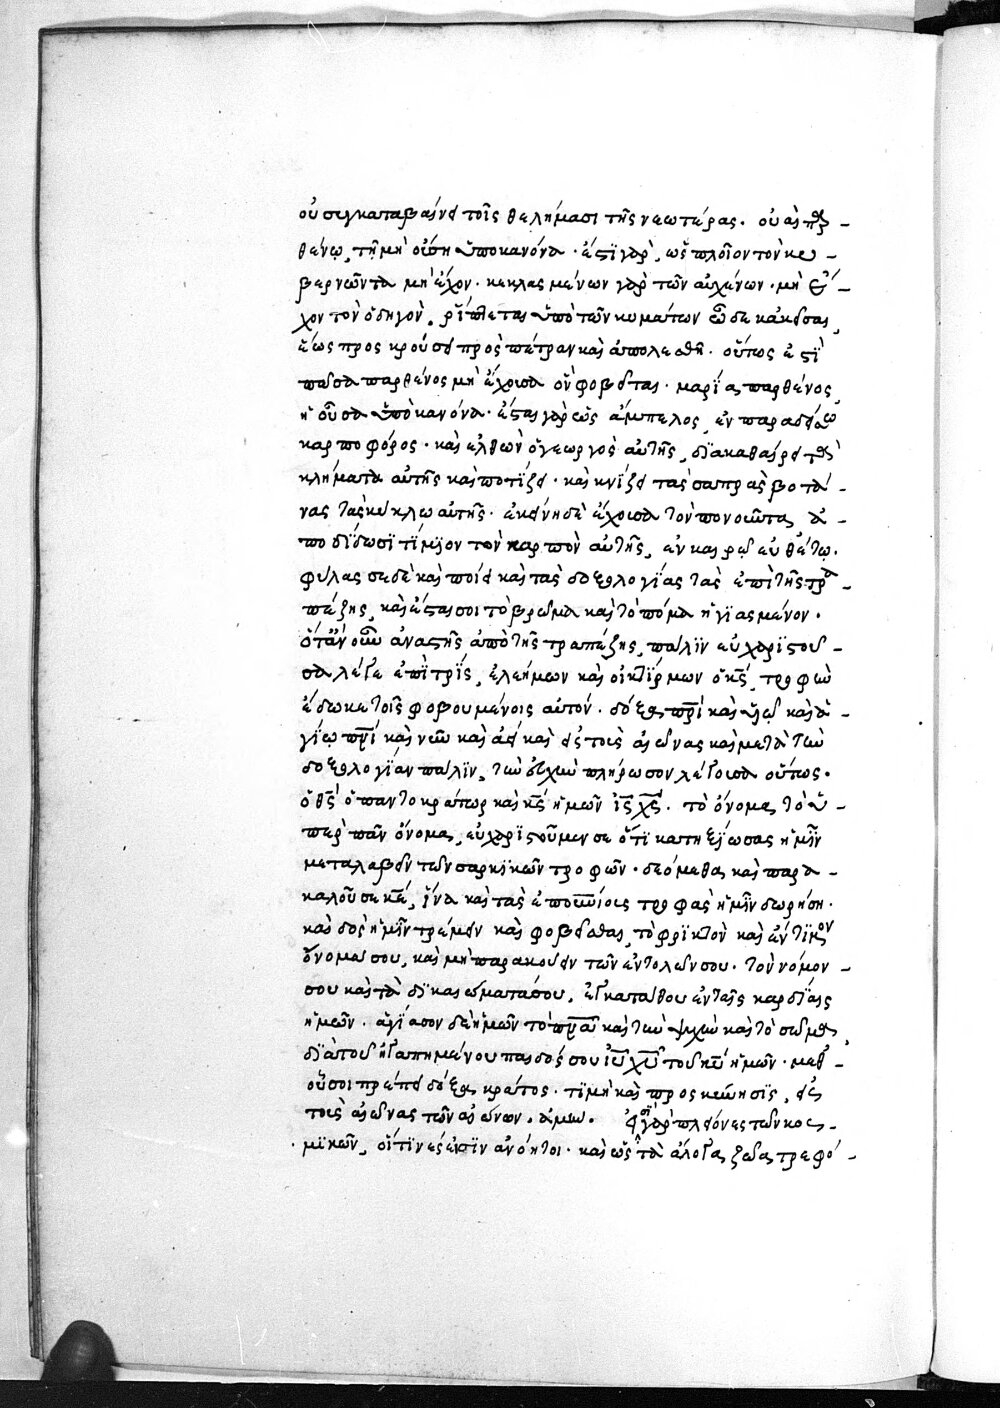 οὐ συγκαταβαίνει τοῖς θελήμασι τῆς νεωτέρας. οὐαὶ παρ-
θένῳ, τῇ μὴ οὔσῃ ὑπὸ κανόνα. ἔστι γὰρ, ὡς πλοῖον τὸν κυ-
βερνῶντα μὴ ἔχον. κεκλασμένων γὰρ τῶν αὐχένων. μὴ ἔ-
χον τὸν ὁδηγὸν, ῥίπτεται ὑπὸ τῶν κυμάτων ὧδε κἀκεῖσαι,
ἕως προσκρούσῃ πρὸς πέτραν καὶ ἀπολεσθῇ. οὕτως ἐστὶ
πᾶσα παρθένος μὴ ἔχουσα ὃν φοβεῖται. μακαρία παρθένος,
ἡ οὖσα ὑπὸ κανόνα. ἔστι γὰρ ὡς ἄμπελος, ἐν παραδείσῳ
καρποφόρος. καὶ ἐλθὼν ὁ γεωργὸς αὐτῆς, διακαθαίρει τὰ
κλήματα αὐτῆς καὶ ποτίζει. καὶ κνίζει τὰς σαπρὰς βοτά-
νας τὰς κύκλῳ αὐτῆς. ἐκείνη δὲ ἔχουσα τὸν πονοῦντα, ἀ-
ποδίδωσι τίμιον τὸν καρπὸν αὐτῆς, ἐν καιρῷ εὐθέτῳ.
φύλασσε δὲ καὶ ποίει καὶ τὰς δοξολογίας τὰς ἐπὶ τῆς τρα-
πέζης, καὶ ἔσται σοι τὸ βρῶμα καὶ τὸ πόμα ἡγιασμένον.
ὅταν οὖν ἀναστῇς ἀπὸ τῆς τραπέζης, πάλιν εὐχαριστοῦ-
σα λέγε ἐπὶ τρίς, ἐλεήμων καὶ οἰκτίρμων ὁ κς, τροφὴν
ἔδωκε τοῖς φοβουμένοις αὐτόν. δόξα πρι καὶ υἱῷ καὶ ἁ-
γίῳ πνι καὶ νῦν καὶ ἀεὶ καὶ εἰς τοὺς αἰῶνας καὶ μετὰ τὴν
δοξολογίαν πάλιν, τὴν εὐχὴν πλήρωσον λέγουσα οὕτως.
ὁ θς ὁ παντοκράτωρ καὶ κς ἡμῶν ις χς. τὸ ὄνομα τὸ ὑ-
πὲρ πᾶν ὄνομα, εὐχαριστοῦμέν σε ὅτι κατηξίωσας ἡμῖν
μεταλαβεῖν τῶν σαρκικῶν τροφῶν. δεόμεθα καὶ παρα-
καλοῦσε κε, ἵνα καὶ τὰς ἐπουνίους τροφὰς ἡμῖν δωρήσῃ.
καὶ δὸς ἡμῖν τρέμειν καὶ φοβεῖσθαι, τὸ φρικτὸν καὶ ἔντιμον
ὄνομά σου, καὶ μὴ παρακούειν τῶν ἐντολῶν σου. τὸν νόμον
σου καὶ τὰ δικαιώματά σου, ἐγκατάθου ἐν ταῖς καρδίαις
ἡμῶν. ἁγίασον δὲ ἡμῶν τὸ πνα καὶ τὴν ψυχὴν καὶ τὸ σῶμα,
διὰ τοῦ ἠγαπημένου παιδός σου ιυ χυ τοῦ κυ ἡμῶν. μεθ'
οὗ σοι πρέπει δόξα κράτος. τιμὴ καὶ προσκύνησις, εἰς
τοὺς αἰῶνας τῶν αἰώνων. ἀμήν. εἰσὶ γὰρ πλείονες τῶν κοσ-
μικῶν, οἵτινές εἰσιν ἀνόητοι. καὶ ὡς τὰ ἄλογα ζῶα τρεφό-